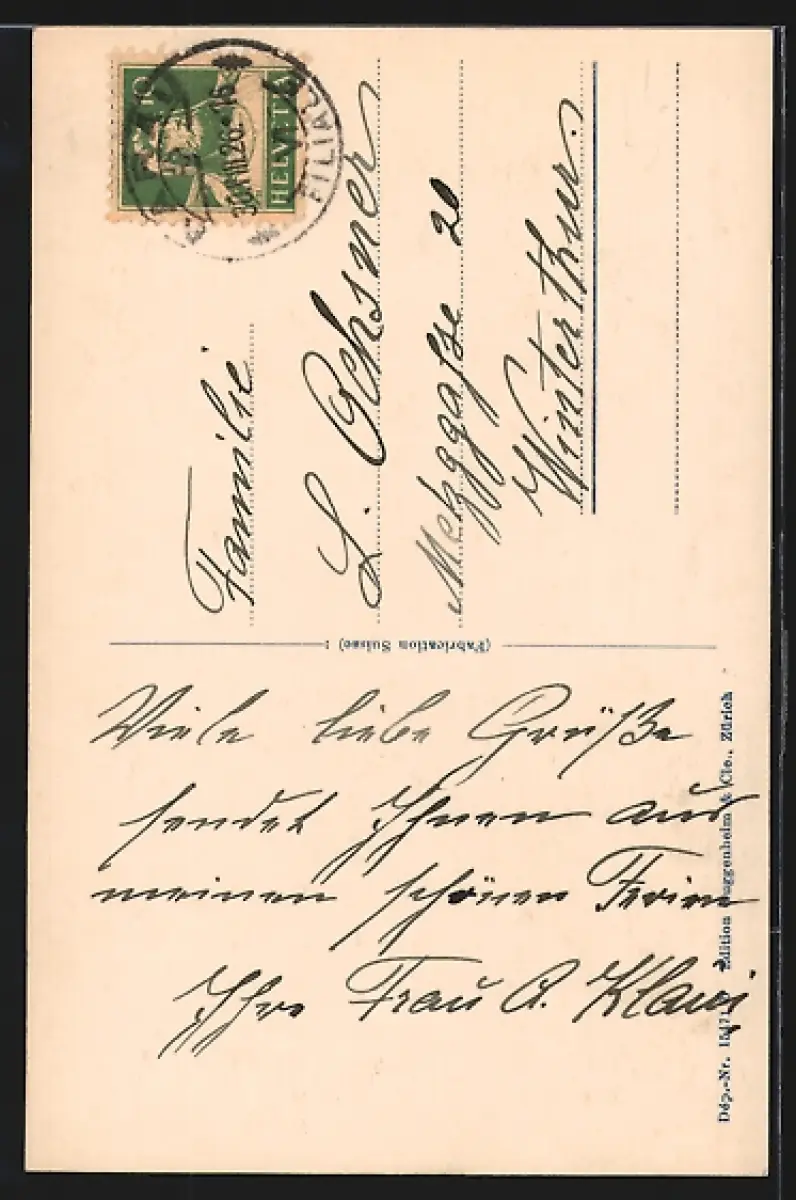 10
HELVETIA
30.VIII.26.
FILIALE
Familie
L. Ochsner
Metzggasse 20
Winterthur.
(Fabrication Suisse)
Viele liebe Grüße
sendet Ihnen aus
meinen schönen Ferien
Ihre Frau A. Klaui
Dép.-Nr. Edition Guggenheim & Cie., Zürich